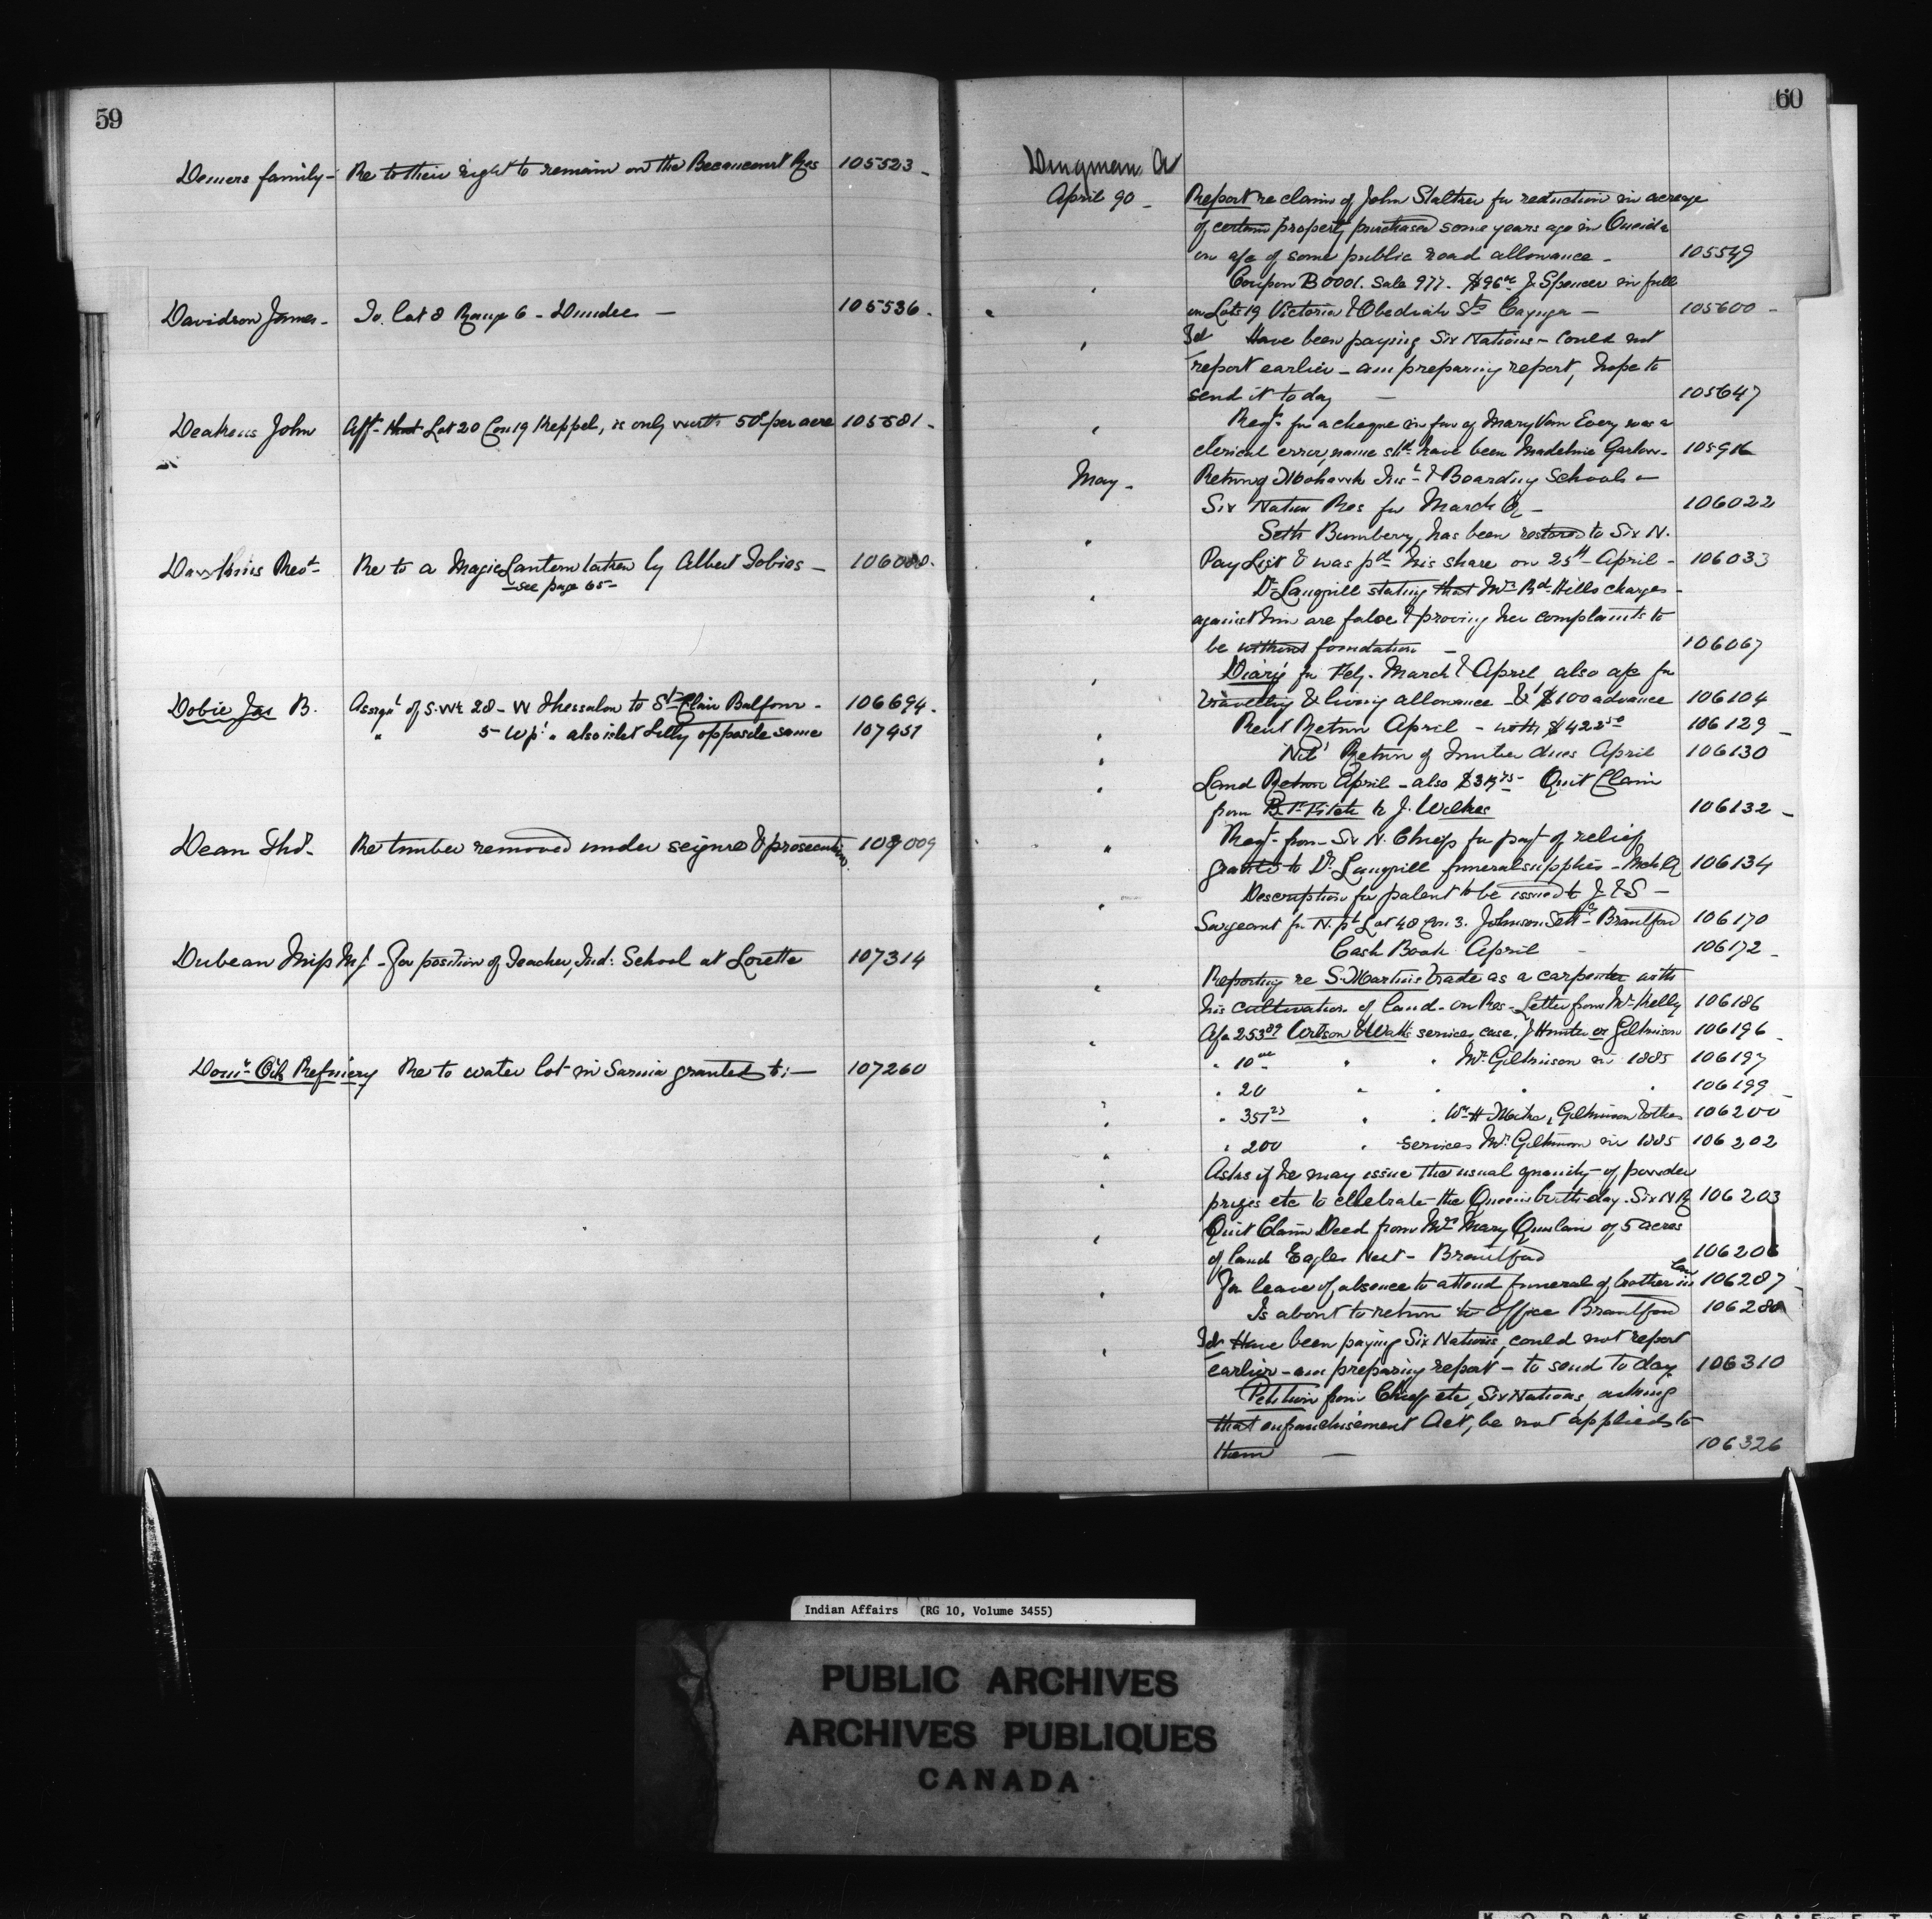 59
Demers family - Re to their right to remain on the Becancourt Res 105523 -
Davidson James - To Lot 8 Range 6 - Dundee - 105536 -
John Afft that Lot 20 Con 19 Keppel, is only worth 50c per acre 105581 -
Re to a Magic Lantern taken by Albert Tobias -
- see page 65 -
Dobie Jas B. Assignt of S. W¼ 28 - W Thessalon to St Clair Balfour - 106694 -
" 5 - W pt " also islet Letty opposite same 107451
Dean Thos - Re timber removed under seizure & prosecution 109009
Dubeau Miss M J - For position of Teacher, Ind: School at Lorette 107314
Domn Oil Refinery Re to water lot in Sarnia granted to: - 107260
60
Dingman A
April 90 - Report re claim of John Stalker for reduction in acreage
of certain property purchased some years ago in Oneida
on a/c of some public road allowance - 105549
" Coupon B 0001. Sale 977. $96 J. Spencer in full
on Lots 19 Victoria & Obediah Sts Cayuga - 105600 -
" Tel Have been paying Six Nations - could not
report earlier - am preparing report, hope to
send it to day - 105647
" Reqt for a cheque in fav of Mary Van Every was a
clerical error, name shd have been Madeline Garlow - 105916
May - Return of Mohawk Inst & Boarding Schools -
Six Nation Res for March Q - 106022
" Seth Bumberry, has been restored to Six N.
Pay List & was pd his share on 25th April - 106033
" Dr Langrill stating that Mrs Rd Hills charges -
against him are false & proving her complaints to
be without foundation - 106067
" Diary for Feby. March & April, also a/c for
travelling & living allowance - & $100 advance 106104
" Rent Return April - with $422 50 106129 -
" "Nil" Return of Timber dues April 106130
" Land Return April - also Quit Claim
from to J. Wilkes 106132 -
" Reqt from Six N. Chiefs for payt of relief
granted to Dr Langrill funeral supplies - Mch Q 106134
" Description for patent to be issued to J. & S -
Sargeant for N. pt Lot 48 Con 3. Johnson Settt Brantford 106170
Cash Book April - 106172 -
" Reporting re S. Martins trade as a carpenter with
his cultivation of land on Res - Letter from Mr Kelly 106186
" A/c 253 89 & Watts services case, J Hunter vs Gilkinson 106196 -
" 10 00 " " Mr Gilkinson in 1885 106197
" 20 " " " " 106199 -
" " 351 23 " " Wm H Gilkinson & others 106200
" " 200 " services Mr Gilkinson in 1885 106202
" Asks if he may issue the usual quantity of powder
prizes etc to celebrate the Queens birth-day. Six N R 106203
" Quit Claim Deed from Mrs Mary Quinlan of 5 acres
of land Eagles Nest - Brantford 106206
" For leave of absence to attend funeral of brother in law 106287 -
Is about to return to Office Brantford
" Tel Have been paying Six Nations, could not report
earlier - am preparing report - to send to day 106310
Petition from Chiefs etc, Six Nations, asking
that enfranchisement Act, be not applied to
them - 106326
Indian Affairs (RG 10, Volume 3455)
PUBLIC ARCHIVES
ARCHIVES PUBLIQUES
CANADA